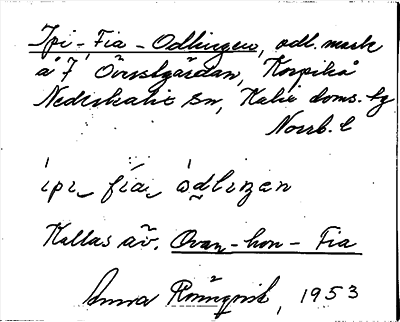 Ipi-Fia-Odlingen, odl. mark
å 7 Övrstgårdan, Korpikå
Nederkalix sn, Kalix doms. tg
Norrb. l
ipi fia odliŋen
Kallas äv. Ovan-hon-Fia
Anna Rönnqvist, 1953